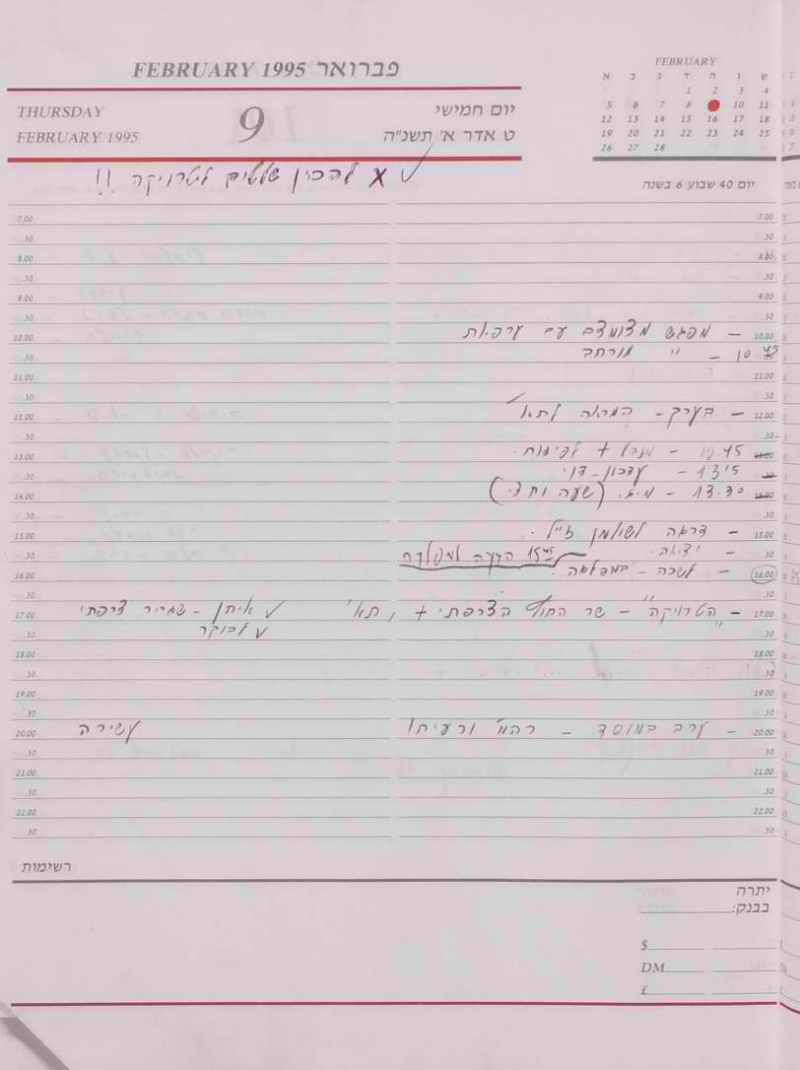 FEBRUARY 1995 פברואר
THURSDAY
FEBRUARY 1995
9
יום חמישי
ט אדר א' תשנ"ה
FEBRUARY
א ב ג ד ה ו ש
1 2 3 4
5 6 7 8 9 10 11
12 13 14 15 16 17 18
19 20 21 22 23 24 25
26 27 28
יום 40 שבוע 6 בשנה
X להכין שלטים לטרויקה !! ✓
7.00
.30
8.00
.30
9.00
.30
10.00 – מפגש מצומצם עם ערפאת
10 45 – " מורחב
11.00
.30
12.00 – בערך – המראה לתא
.30
12.45 – מנכ"ל + לפידות.
13.15 – עדכון - דני
13.30 – (שעה וחצי)
.30
15.00 – צדאה לשולמן ז"ל.
.30 – יציאה. 15 45 הגעה למפלגה
16.00 – לשכה - במפלגה.
.30
17.00 – "הטרויקה" – שר החוץ הצרפתי + , תא' ✓ איתן - שגריר צרפתי
.30 ✓ לבוקר
18.00
.30
19.00
.30
20.00 – ערב במוסד – רהמ' ורעיתו עשירה
.30
21.00
.30
22.00
.30
רשימות
יתרה
בבנק:
$
DM
£